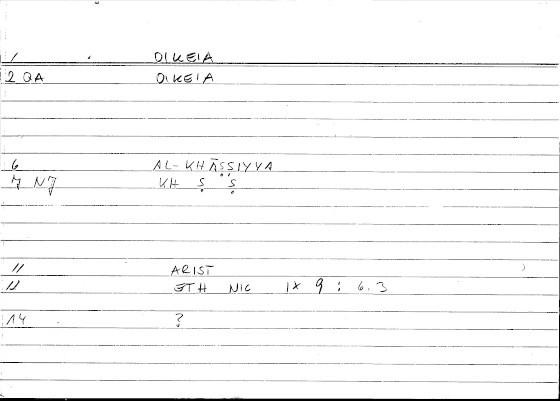 1 OIKEIA
2 QA OIKEIA
6 AL-KHĀṢṢIYYA
7 NJ KH Ṣ Ṣ
11 ARIST
11 ETH NIC IX 9 : 6.3
14 ?